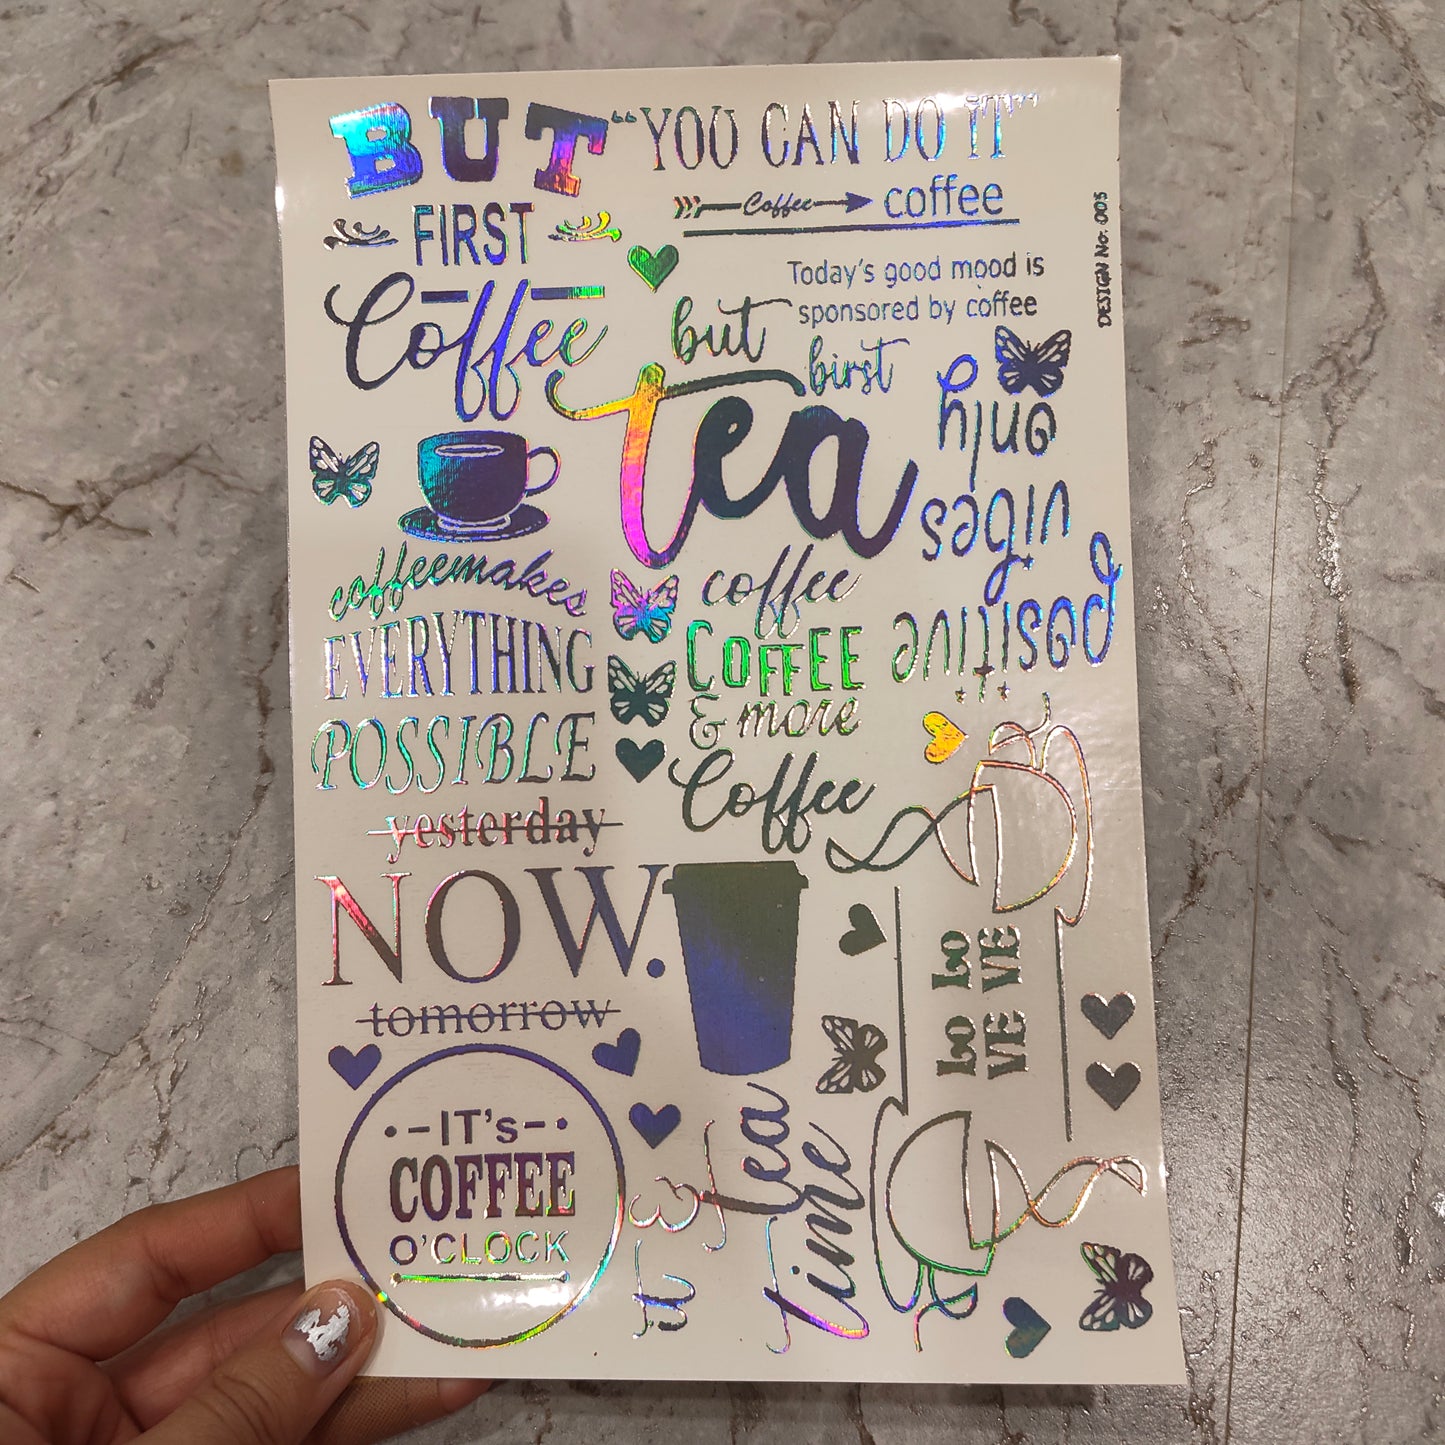 BUT
FIRST
Coffee
“YOU CAN DO IT”
Coffee coffee
Today's good mood is
sponsored by coffee
DESIGN No: 005
but
birst
tea
positive
vibes
only
coffeemakes
EVERYTHING
POSSIBLE
coffee
COFFEE
& more
Coffee
yesterday
NOW.
tomorrow
LO LO
VE VE
-IT's-
COFFEE
O'CLOCK
tea
time